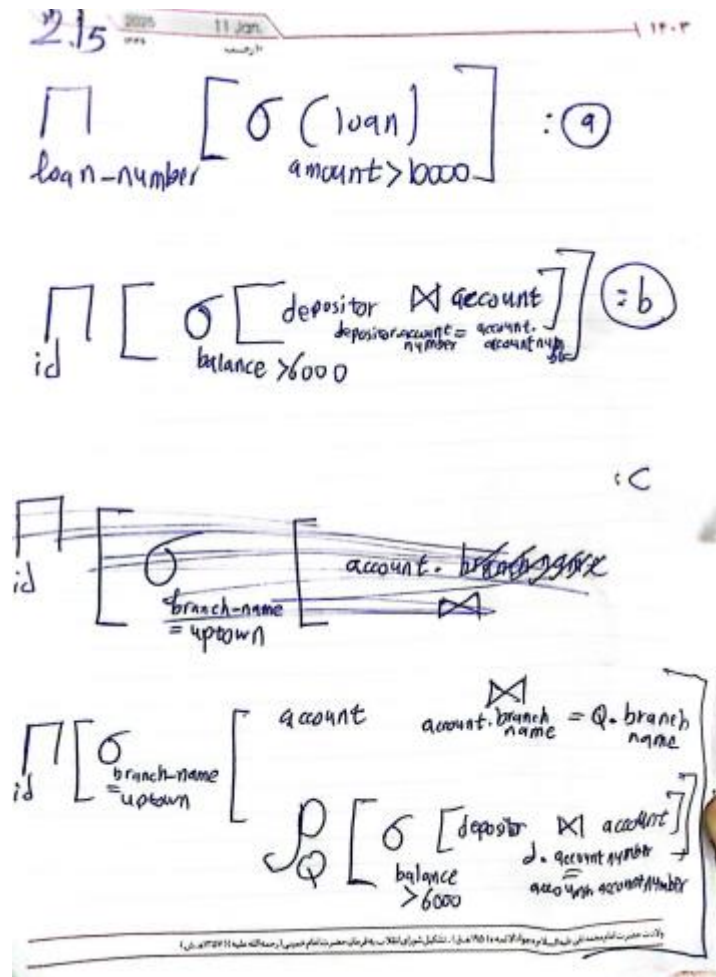 2.15 2025 11 Jan. ۱۴۰۳
Π loan-number [ σ (loan) amount>10000 ] : ⓐ
Π id [ σ balance >6000 [ depositor ⋈ account depositor.account number = account. account number ] ] : b
: C
Π id [ σ branch-name = uptown [ account. branch-name ⋈
Π id [ σ branch-name = uptown [ account ⋈ account.branch name = Q.branch name
ρ Q [ σ balance >6000 [ depositor ⋈ account d. account number = account. account number ] ] ]